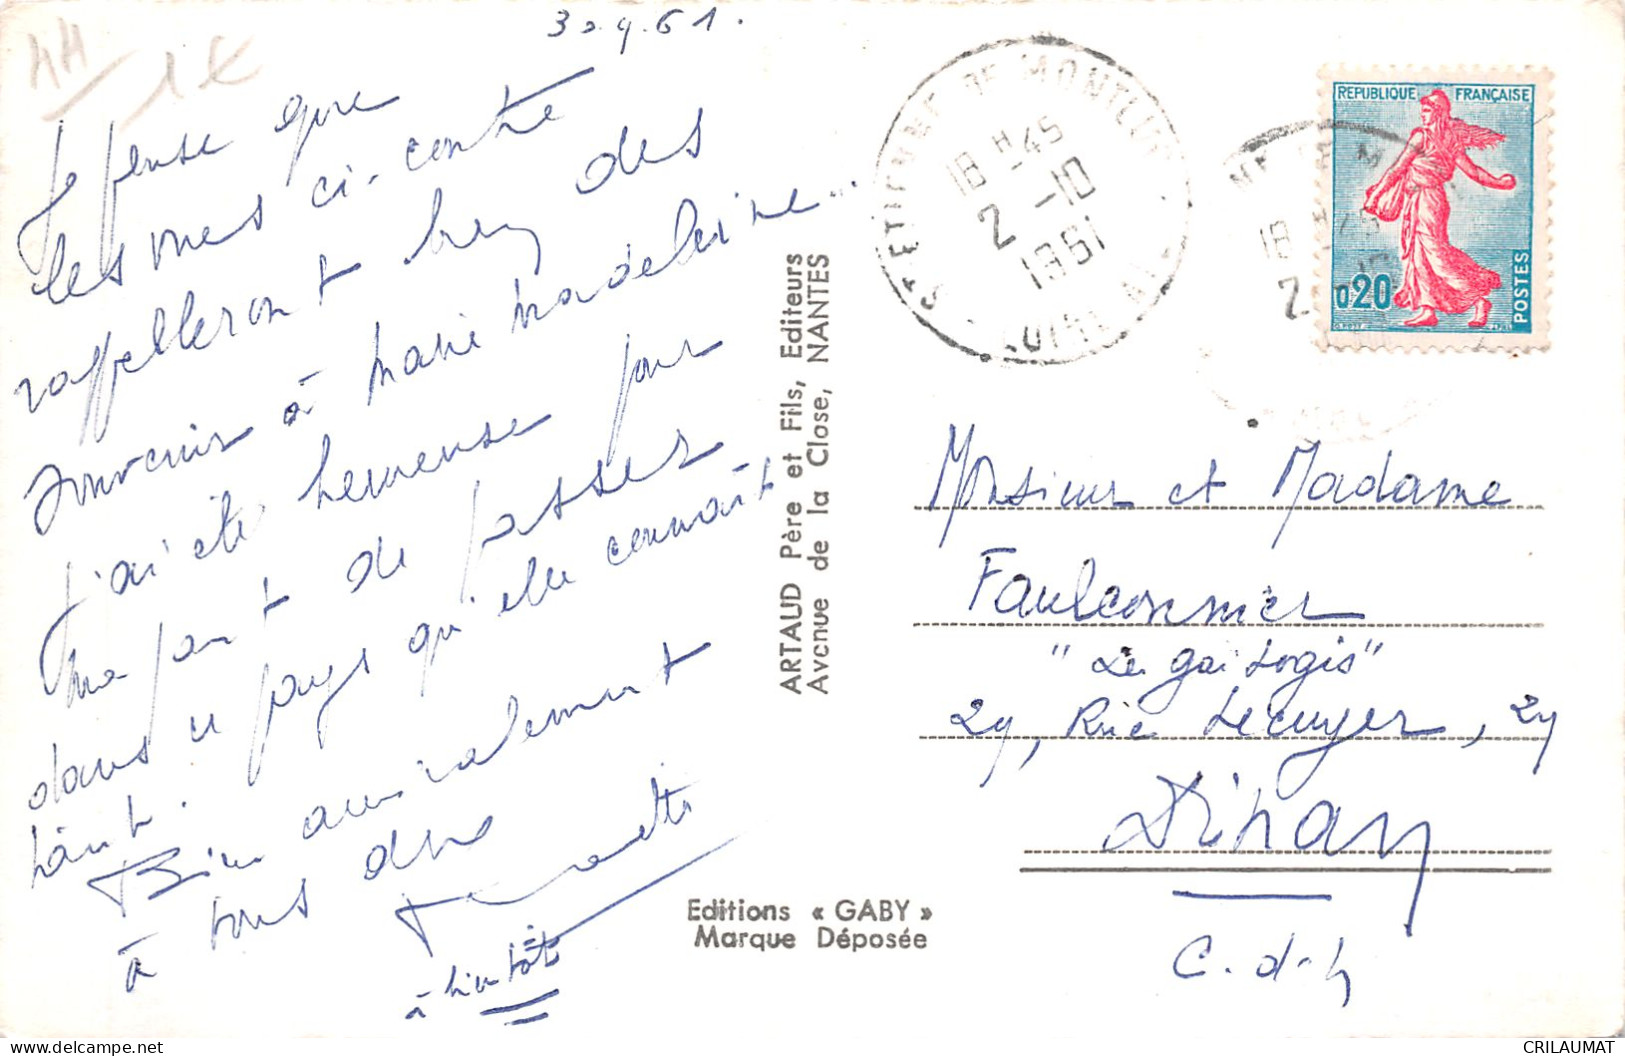 30.9.61.
44
1€
Je pense que
les vues ci-contre
rappelleront bien des
souvenirs à Marie Madeleine...
J'ai été heureuse pour
ma part de passer
dans un pays qu'elle connaît
tant.
Bien amicalement
à tous deux
à bientôt
ARTAUD Père et Fils, Editeurs
Avenue de la Close, NANTES
Editions « GABY »
Marque Déposée
ST ETIENNE DE MONTLUC
18 H 45
2 -10
1961
LOIRE
REPUBLIQUE FRANÇAISE
0,20
POSTES
Monsieur et Madame
Faulconnier
"Le gai Logis"
29, Rue Lecuyer, 29
Dinan
C.-d-N
CRILAUMAT